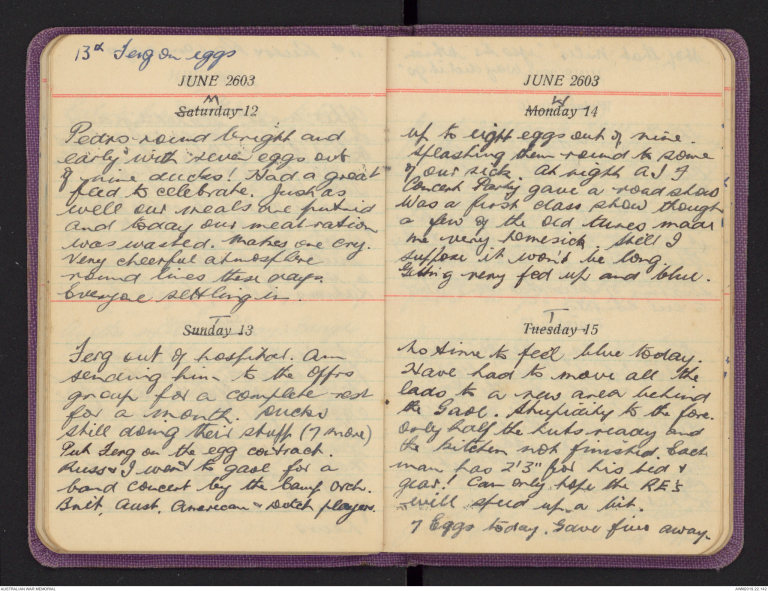 13th Ferg on eggs
JUNE 2603
M
Saturday 12
Pedro round bright and
early with seven eggs out
of nine ducks! Had a great
feed to celebrate. Just as
well our meals are putrid
and today our meat ration
was wasted. Makes one cry.
Very cheerful atmosphere
round lines these days.
Everyone settling in.
T
Sunday 13
Ferg out of hospital. Am
sending him to the Offrs
group for a complete rest
for a month. Ducks
still doing their stuff (7 more)
Put Ferg on the egg contract.
Russ & I went to gaol for a
band concert by the Camp Orch.
Brit, Aust, American & Dutch players.
JUNE 2603
W
Monday 14
up to eight eggs out of nine.
Splashing them round to some
of our sick. At night A.I.F
Concert Party gave a road show
Was a first class show though
a few of the old tunes made
me very homesick. Still I
suppose it won't be long.
Getting very fed up and blue.
T
Tuesday 15
No time to feel blue today.
Have had to move all the
lads to a new area behind
the Gaol. Stupidity to the fore.
Only half the huts ready and
the kitchen not finished. Each
man has 2'3" for his bed &
gear! Can only hope the RE's
will speed up a bit.
7 Eggs today. Gave five away.
AUSTRALIAN WAR MEMORIAL
AWM2018.22.142